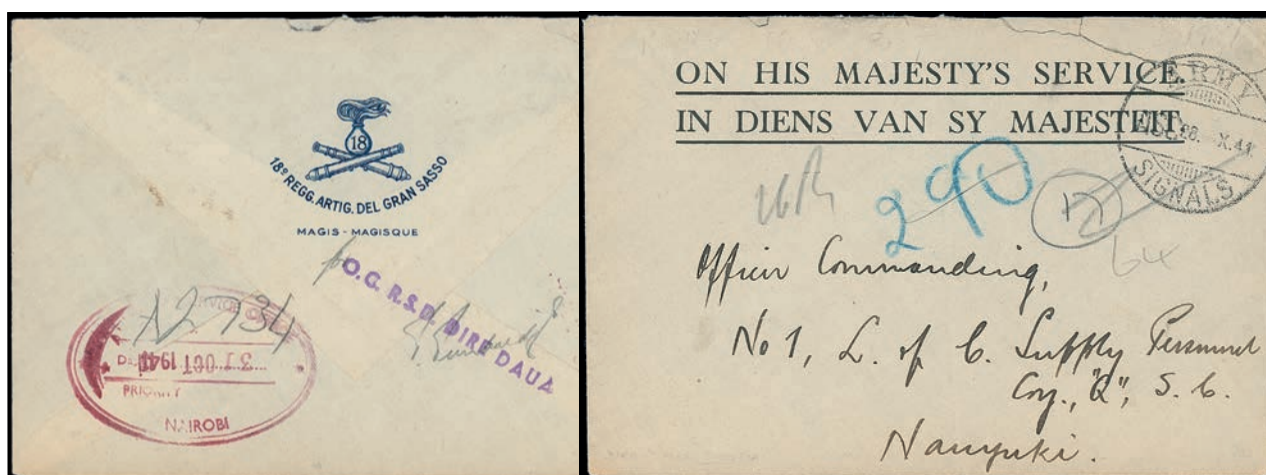 18
18º REGG. ARTIG. DEL GRAN SASSO
MAGIS - MAGISQUE
O.C. R.S.D. DIRE DAUA
N2 734
31 OCT 1941
PRIORITY
NAIROBI
ON HIS MAJESTY'S SERVICE.
IN DIENS VAN SY MAJESTEIT.
ARMY
28. X.41.
SIGNALS
290
17
64
Officer Commanding,
No 1, L. of C. Supply Personnel
Coy., "Q", S. C.
Nanyuki.